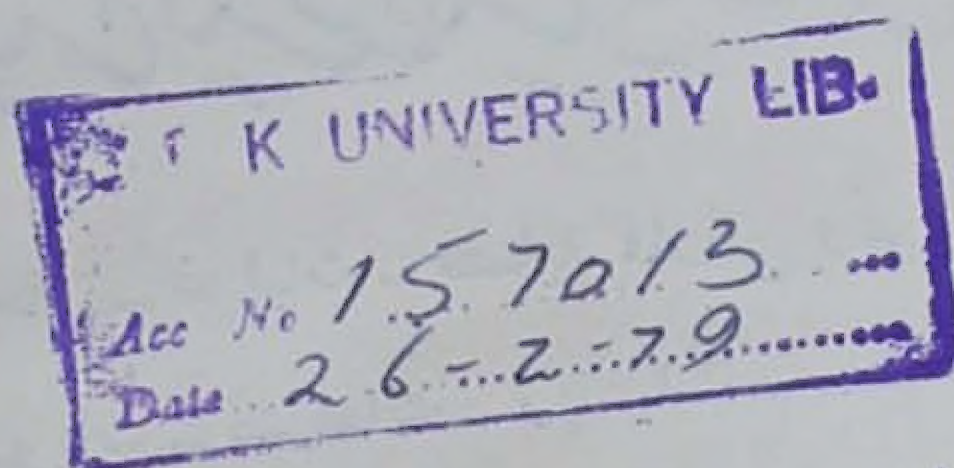 K UNIVERSITY LIB.
Acc No 157013
Date 26-2-79